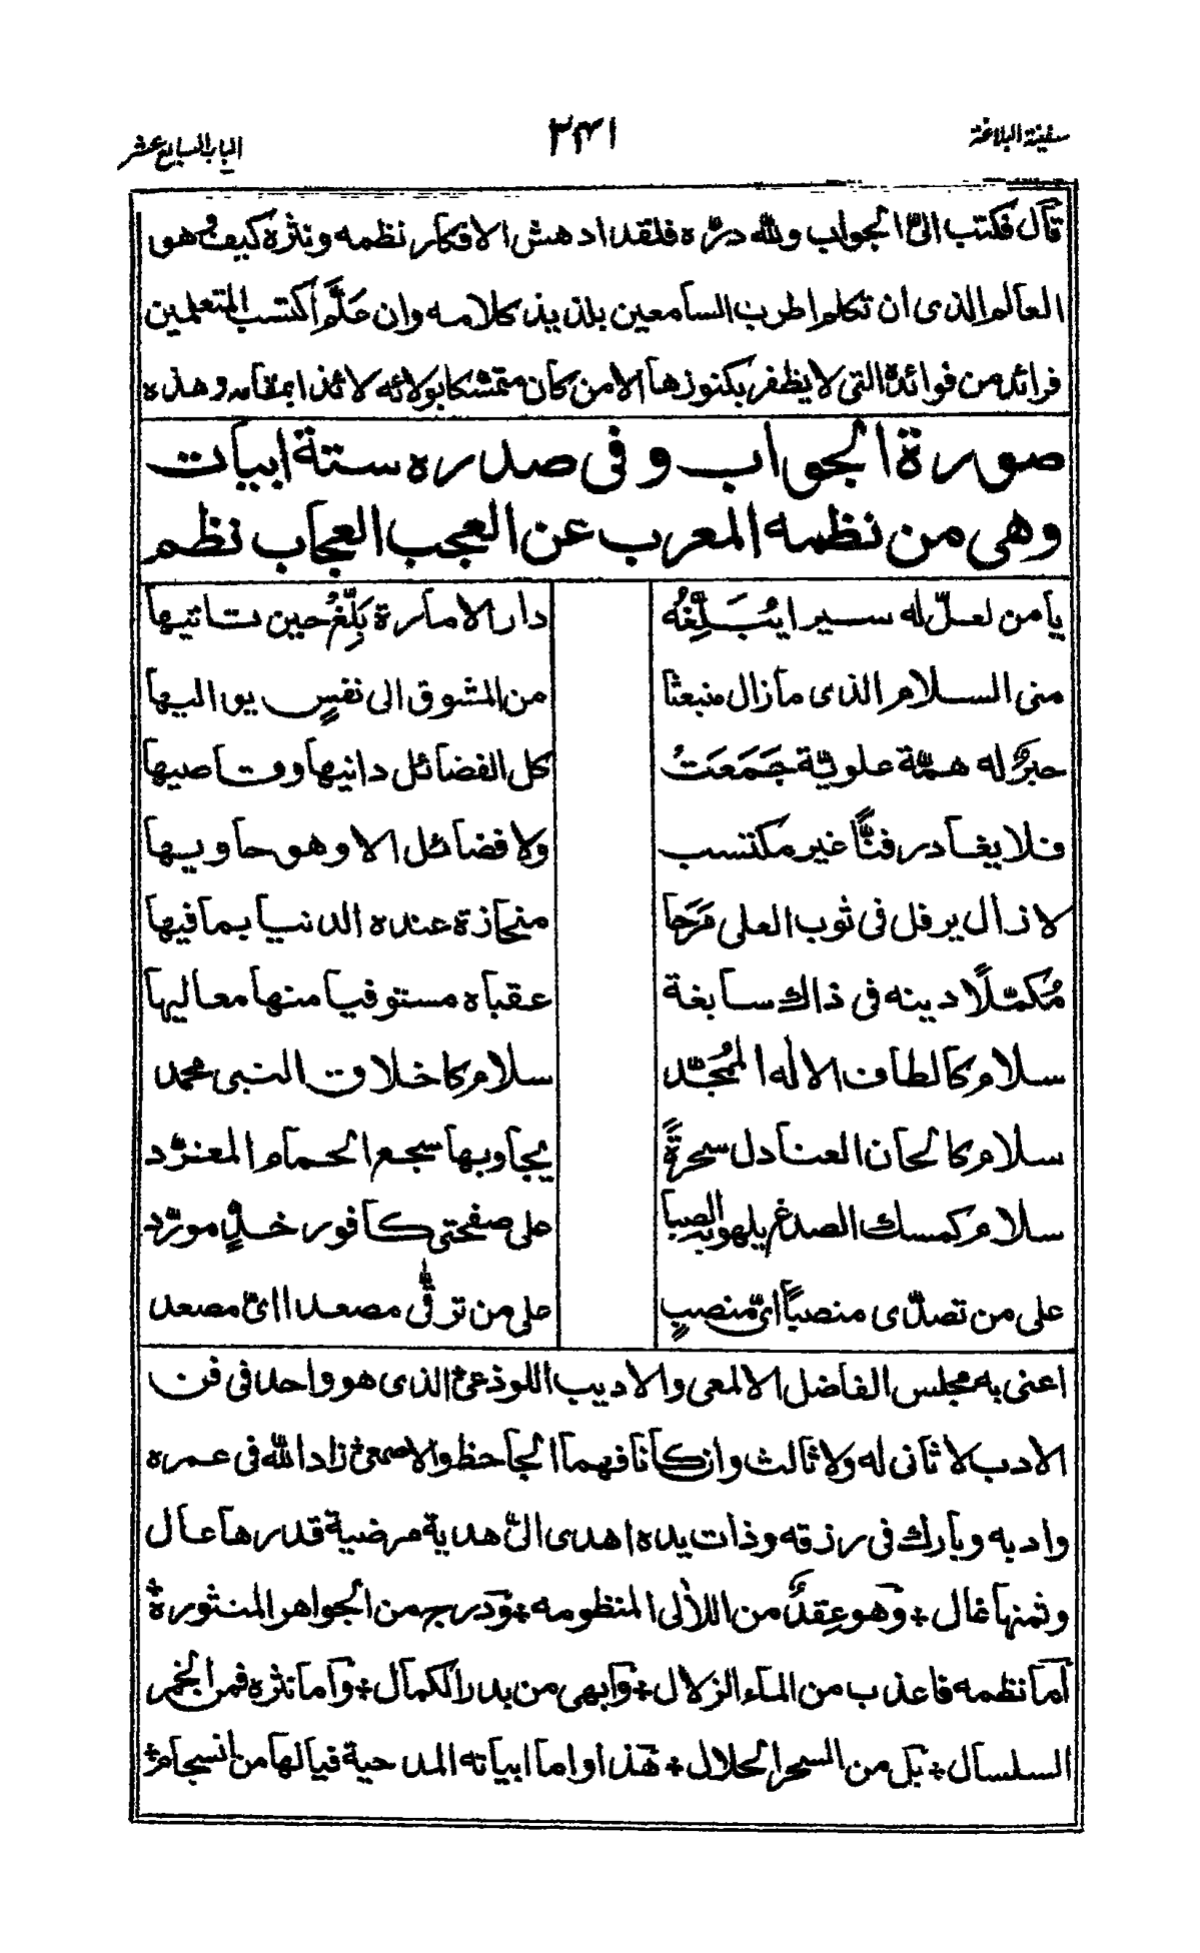 سفينة البلاغة
٣٤١
الباب السابع عشر
قال فكتب اليّ الجواب ولله درّه فلقد ادهش الافكار نظمه ونثره كيف هو
العالم الذى ان تكلم اطرب السامعين بلذيذ كلامه وان عَلَّم أكتسب المتعلمين
فرائد من فوائدة التى لا يظفر بكنوزها الا من كان متمسّكا بولائه لائذا بمقامه وهذه
صورة الجواب وفى صدره ستة ابيات
وهى من نظمه المعرب عن العجب العجاب نظم
يا من لعلّ له سيرا يُبَلِّغُه دار الامارة بَلِّغْ حين تاتيها
منى السلام الذى مازال منبعثا من المشوق الى نفسٍ يواليها
حبرٌ له همّة علويّة جَمَعَتْ كل الفضائل دانيها وقاصيها
فلا يغادر فنًّا غير مكتسب ولا فضائل الا وهو حاويها
لا زال يرفل فى ثوب العلى مَرَحا منحازة عنده الدنيا بما فيها
مُكمّلًا دينه فى ذاك سابغة عقباه مستوفيا منها معاليها
سلام كالطاف الاله المُمجّد سلام كاخلاق النبى محمد
سلام كالحان العنادل سحرةً يجاوبها سجع الحمام المغرّد
سلام كمسك الصدغ يلهو به الصبا على صفحتى كافور خدٍّ مورّد
على من تصدّى منصبًا اىّ منصبٍ على من ترقّى مصعدا اىّ مصعد
اعنى به مجلس الفاضل الالمعى والاديب اللوذعىّ الذى هو واحد فى فن
الادب لا ثانى له ولا ثالث وان كانا فهما الجاحظ والاصمعىّ زاد الله فى عمره
وادبه وبارك فى رزقه وذات يده اهدى الىّ هدية مرضية قدرها عال
وثمنها غال ÷ وهو عِقدٌ من اللآلى المنظومه ÷ ودرج من الجواهر المنثورة ÷
آما نظمه فاعذب من الماء الزلال ÷ وآبهى من بدر الكمال ÷ وآما نثره فمن الخمر
السلسال ÷ بل من السحر الحلال ÷ هذا واما ابياته المدحية فيالها من انسجام ÷